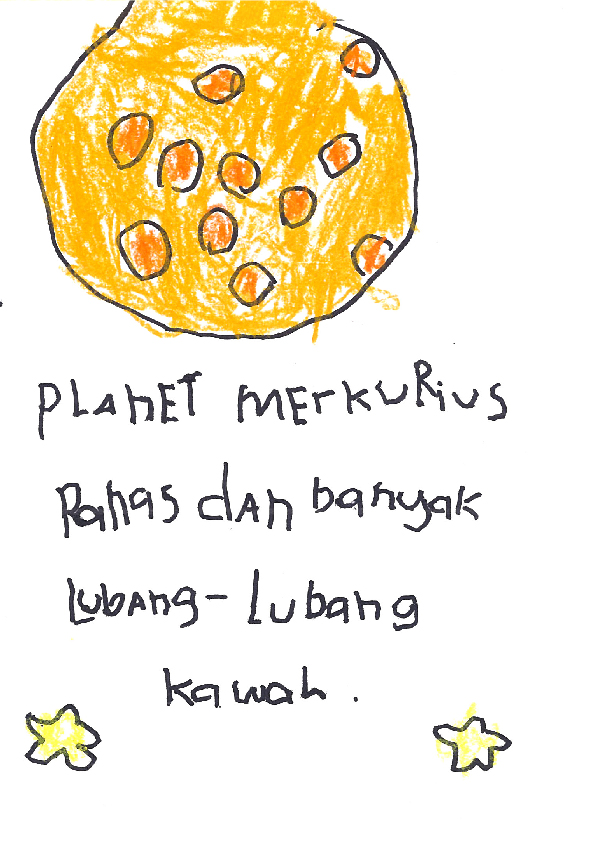 PLANET MERKURIUS
Panas dAn banyak
Lubang-Lubang
kawah.